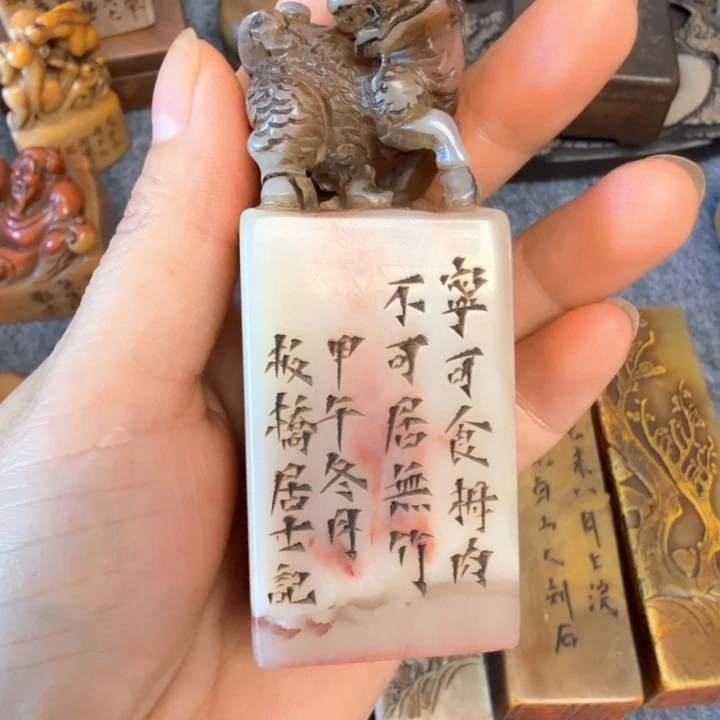 寧可食肉
不可居無竹
甲午冬月
板橋居士記
未八月上浣
山人